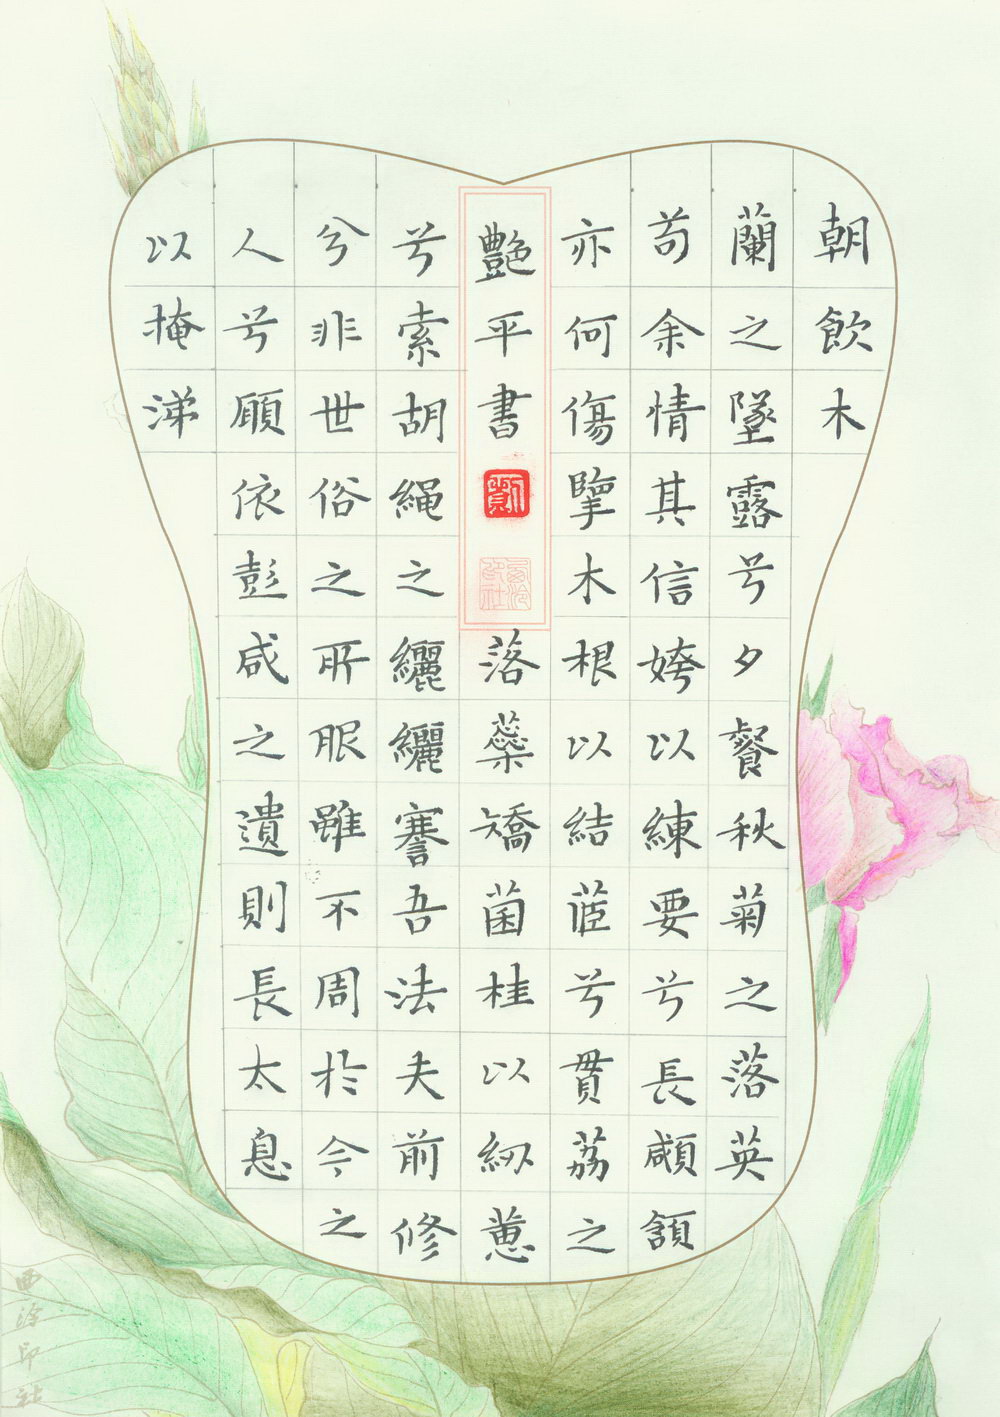 朝飲木
蘭之墜露兮夕餐秋菊之落英
苟余情其信姱以練要兮長顑頷
亦何傷擥木根以結茝兮貫荔之
艷平書
落蘂矯菌桂以紉蕙
兮索胡繩之纚纚謇吾法夫前修
兮非世俗之所服雖不周於今之
人兮願依彭咸之遺則長太息
以掩涕
西泠印社
西泠印社